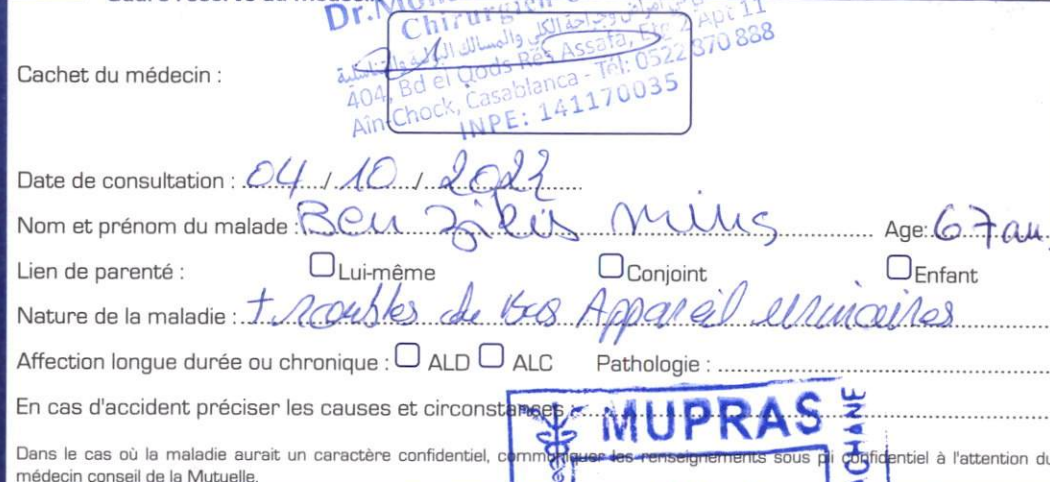 Dr.
Chirurgien
404, Bd el Qods Rés Assafa, Etg 2 Apt 11
Aïn Chock, Casablanca - Tél: 0522 870 888
INPE: 141170035
Cachet du médecin :
Date de consultation : 04 / 10 / 2022
Nom et prénom du malade : Ben Age: 67 an
Lien de parenté : Lui-même Conjoint Enfant
Nature de la maladie : troubles de bas Appareil urinaires
Affection longue durée ou chronique : ALD ALC Pathologie :
En cas d'accident préciser les causes et circonstances :
MUPRAS
Dans le cas où la maladie aurait un caractère confidentiel, communiquer les renseignements sous pli confidentiel à l'attention du
médecin conseil de la Mutuelle.